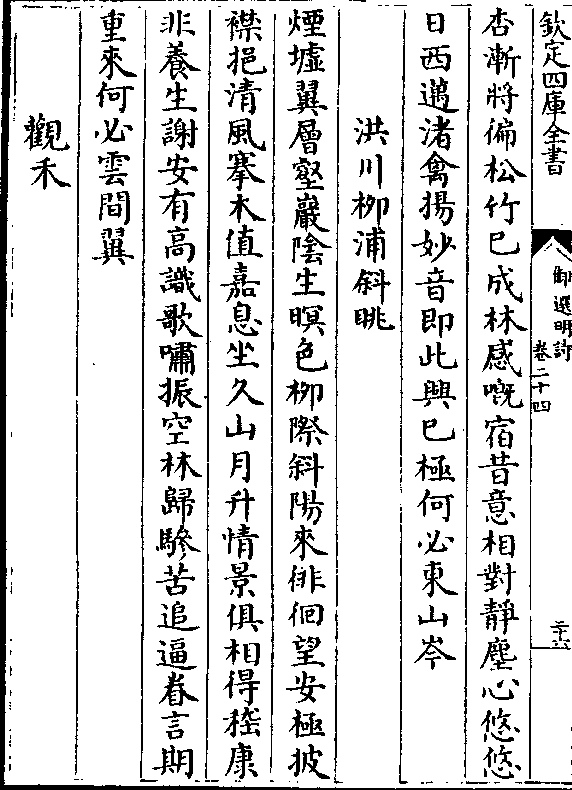 欽定四庫全書
御選明詩 卷二十四
三十六
杏漸將徧松竹已成林感嘅宿昔意相對靜塵心悠悠
日西邁渚禽揚妙音即此興已極何必東山岑
洪川栁浦斜眺
煙墟翼層壑巖陰生暝色栁際斜陽來徘徊望安極披
襟挹清風搴木值嘉息坐久山月升情景俱相得嵇康
非養生謝安有高識歌嘯振空林歸驂苦追逼眷言期
重來何必雲間翼
觀禾